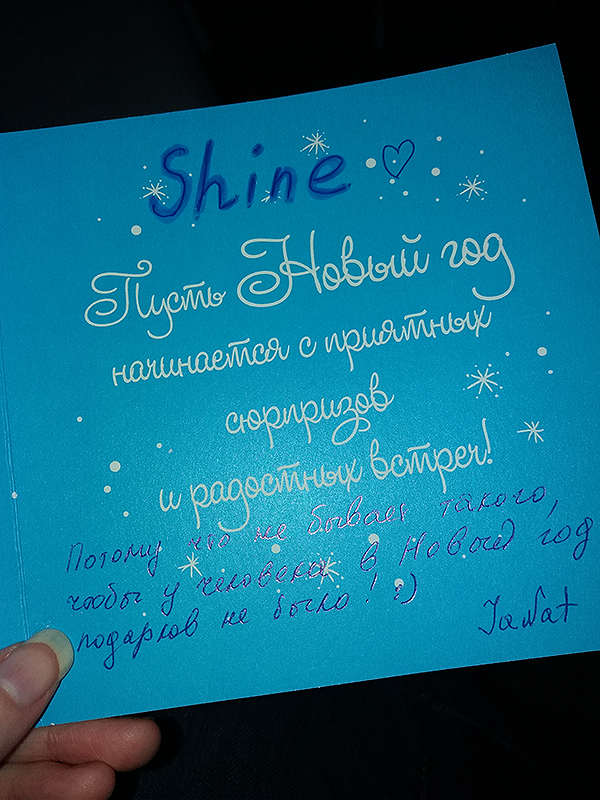 Shine ♡
Пусть Новый год
начинается с приятных
сюрпризов
и радостных встреч!
Потому что не бывает такого,
чтобы у человека в Новый год
подарков не было! :)
JaNat